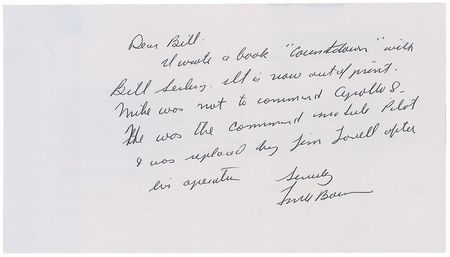 Dear Bill:
I wrote a book "Countdown" with
Bill Serling. It is now out of print.
Mike was not to command Apollo 8.
He was the command module Pilot
& was replaced by Jim Lovell after
his operation Sincerely
Frank Borman